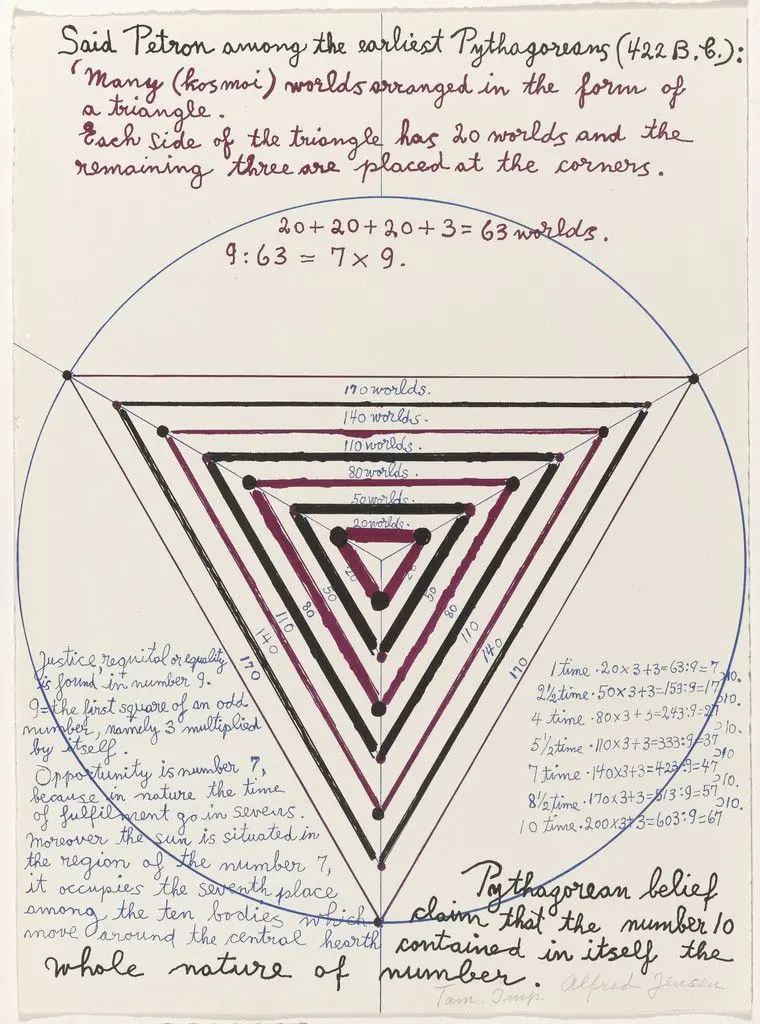 Said Petron among the earliest Pythagoreans (422 B.C.):
'Many (kosmoi) worlds arranged in the form of
a triangle.
Each side of the triangle has 20 worlds and the
remaining three are placed at the corners.
20+20+20+3=63 worlds.
9:63 = 7×9.
170 worlds.
140 worlds.
110 worlds.
80 worlds.
50 worlds.
20 worlds.
20 20
50 50
80 80
110 110
140 140
170 170
Justice, requital or equality
is found in number 9.
9=the first square of an odd
number, namely 3 multiplied
by itself.
Opportunity is number 7,
because in nature the time
of fulfilment go in sevens.
Moreover the sun is situated in
the region of the number 7,
it occupies the seventh place
among the ten bodies which
move around the central hearth
1 time ·20×3+3=63:9=7
>10.
2½ time ·50×3+3=153:9=17
>10.
4 time ·80×3+3=243:9=27
>10.
5½ time ·110×3+3=333:9=37
>10
7 time ·140×3+3=423:9=47
>10.
8½ time ·170×3+3=513:9=57
>10.
10 time ·200×3+3=603:9=67
Pythagorean belief
claim that the number 10
contained in itself the
whole nature of number.
Tam. Imp. Alfred Jensen